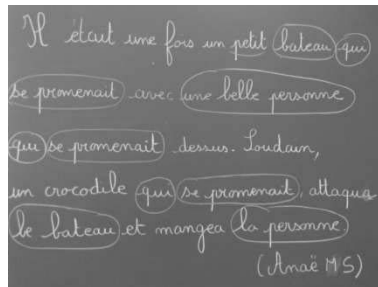 Il était une fois un petit bateau qui
se promenait avec une belle personne
qui se promenait dessus. Soudain,
un crocodile qui se promenait, attaqua
le bateau et mangea la personne.
(Anaë MS)